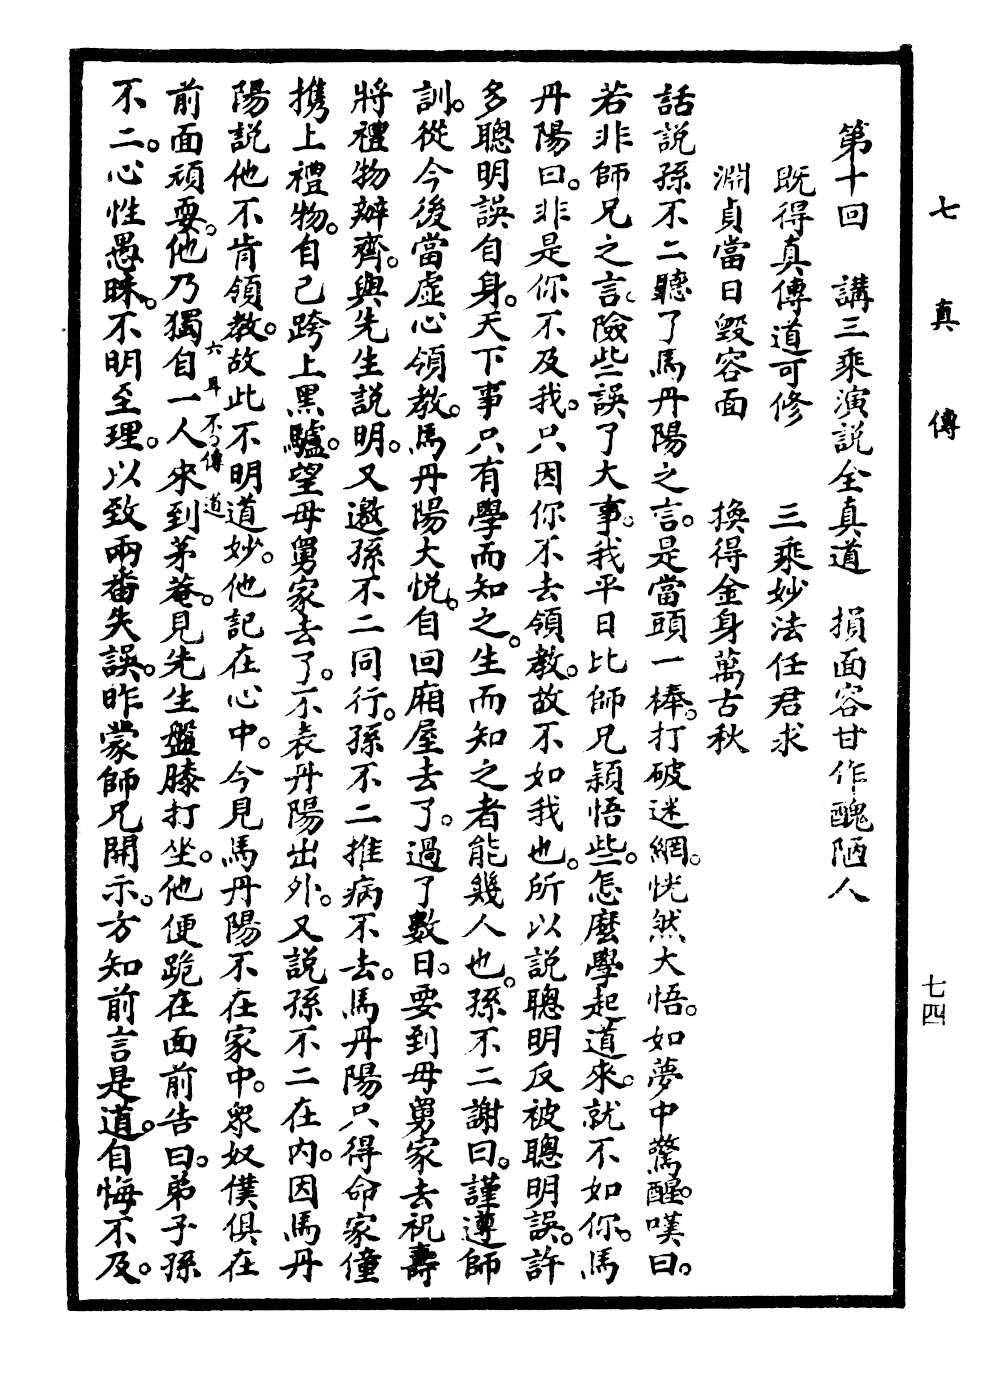 七真傳
七四
第十回　講三乘演説全真道　損面容甘作醜陋人
既得真傳道可修　三乘妙法任君求
淵貞當日毀容面　換得金身萬古秋
話説孫不二聽了馬丹陽之言。是當頭一棒。打破迷網。恍然大悟。如夢中驚醒。嘆曰。
若非師兄之言。險些誤了大事。我平日比師兄穎悟些。怎麼學起道來。就不如你。馬
丹陽曰。非是你不及我。只因你不去領教。故不如我也。所以説聰明反被聰明誤。許
多聰明誤自身。天下事只有學而知之。生而知之者能幾人也。孫不二謝曰。謹遵師
訓。從今後當虛心領教。馬丹陽大悦。自回廂屋去了。過了數日。要到母舅家去祝壽
將禮物辦齊。與先生説明。又邀孫不二同行。孫不二推病不去。馬丹陽只得命家僮
携上禮物。自己跨上黑驢。望母舅家去了。不表丹陽出外。又説孫不二在内。因馬丹
陽説他不肯領教。故此不明道妙。他記在心中。今見馬丹陽不在家中。衆奴僕俱在
六耳不傳道
前面頑耍。他乃獨自一人來到茅菴。見先生盤膝打坐。他便跪在面前告曰。弟子孫
不二。心性愚昧。不明至理。以致兩番失誤。昨蒙師兄開示。方知前言是道。自悔不及。